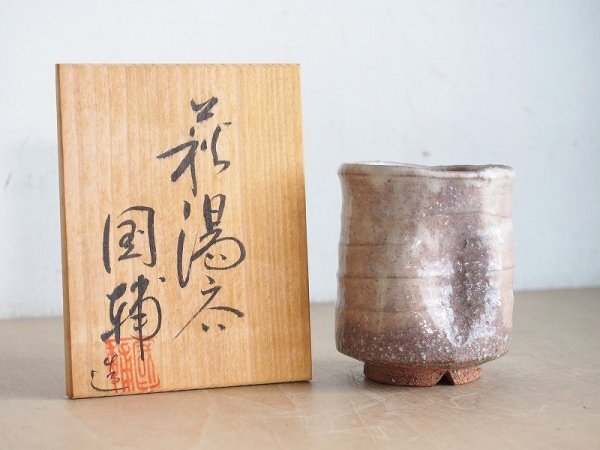 萩湯呑
国輔造